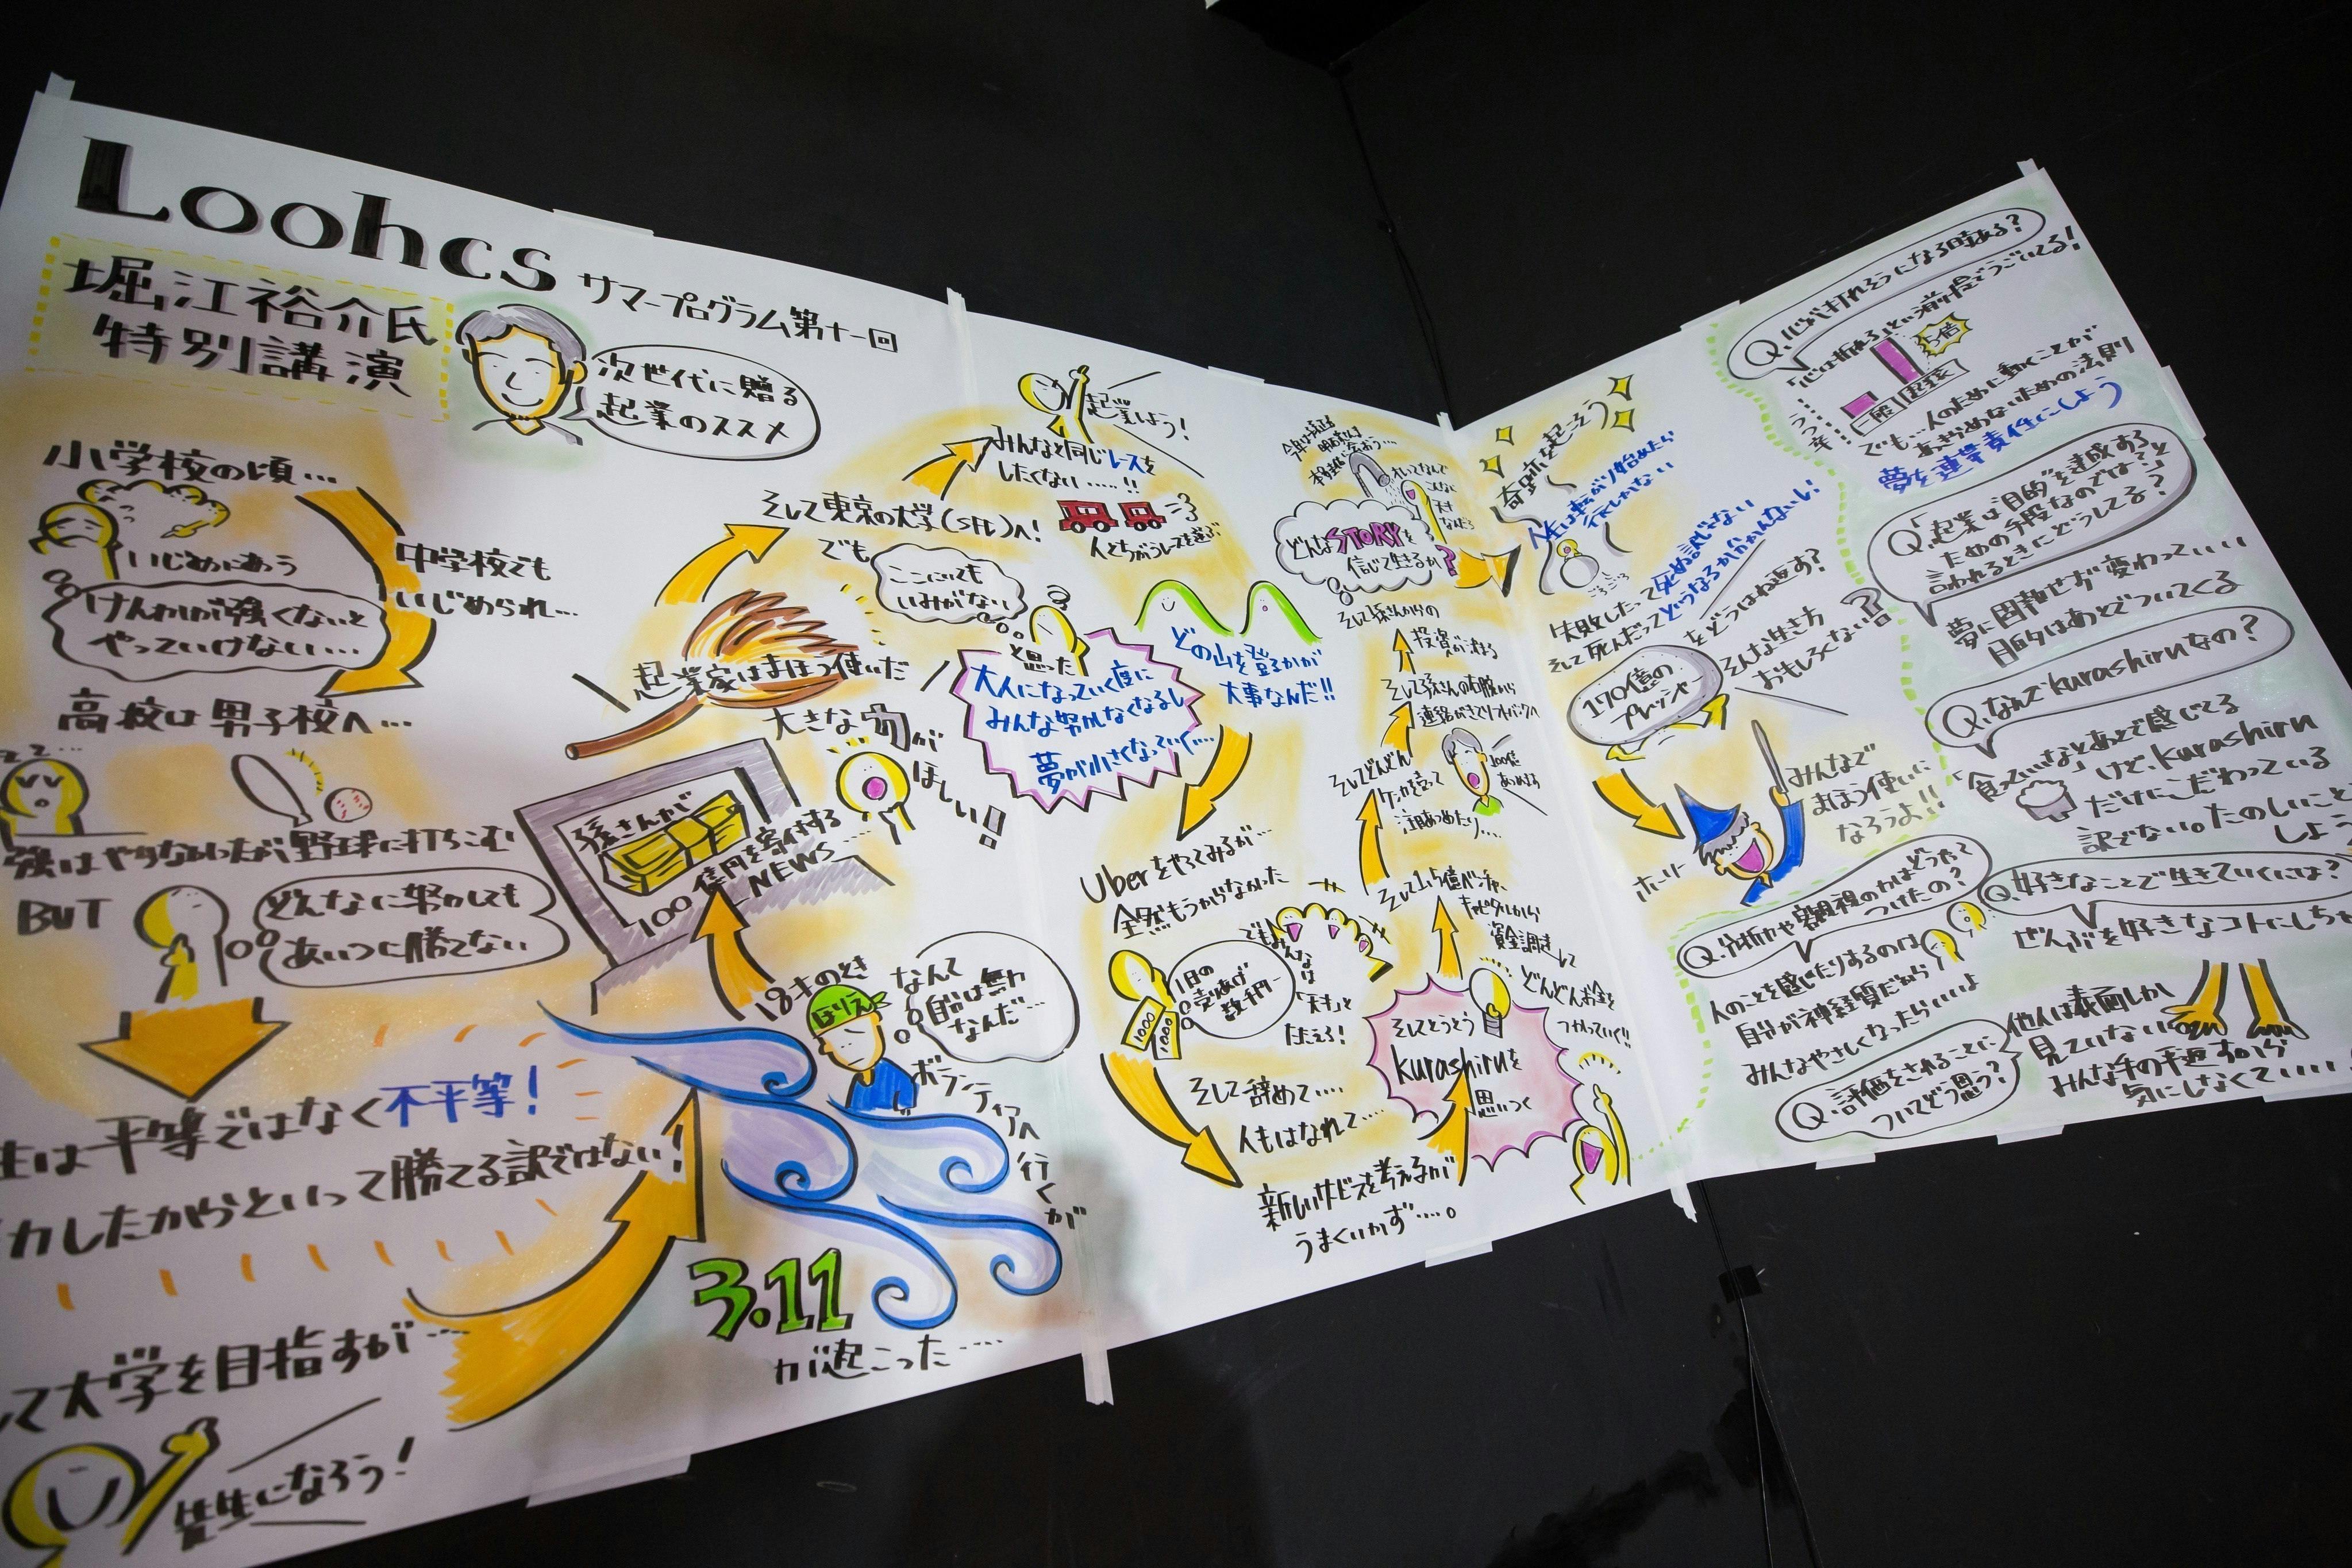 Loohcs
サマープログラム第十一回
堀江裕介氏
特別講演
次世代に贈る
起業のススメ
小学校の頃…
いじめにあう
けんかが強くないと
やっていけない…
中学校でも
いじめられ…
高校は男子校へ…
強はやらなかったが野球に打ちこむ
BUT
どんなに努力しても
あいつに勝てない
生は平等ではなく不平等!
力したからといって勝てる訳ではない!
して大学を目指すが…
先生になろう!
3.11
が起こった……
18才のとき
ほりえ
なんて
自分は無力
なんだ…
ボランティアへ行くが
孫さんが
100億円を寄付する
NEWS…
大きな力が
ほしい!!
起業家はまほう使いだ
そして東京の大学(SFC)へ!
でも
ここにいても
いみがない
と思った
大人になっていく度に
みんな努力しなくなるし
夢が小さくなっていく…
みんなと同じレースを
したくない……!!
起業しよう!
人とちがうレースを選ぶ
どの山を登るかが
大事なんだ!!
Uberをやってみるが…
全然もうからなかった
1日の
売りあげ
数千円…
1000
1000
でもみんなは
「天才」と
たたえる!
そして辞めて…
人もはなれて…
新しいサービスを考えるが
うまくいかず…。
そしてとうとう
kurashiruを
思いつく
どんどんお金を
つかっていく!!
そして1.5億ベンチャー
キャピタルから
資金調達して
そしてどんどん
ケンカを売って
注目あつめたり…
100億
あつめる
そして孫さんの右腕から
連絡がきてソフトバンクへ
そして孫さんからの
投資が決まる
どんなSTORYを
信じて生きるか?
奇跡を起こそう
人生は転がり始めたら
行くしかない
失敗したって死ぬ訳じゃない
そして死んだってどうなるかわかんないし!
170億の
プレッシャー
をどうはね返す?
そんな生き方
おもしろくない?
みんなで
まほう使いに
なろうよ!!
ホーリー
Q.心が折れそうになる時ある?
「心は折れる」という消り度でうごいてる!
5倍
一般
起業家
うつ…
率!
でも…人のために動くことが
あきらめないための法則
夢を連帯責任にしよう
Q.「起業は"目的"を達成する
ための手段なのでは?」と
言われるときにどうしてる?
夢に固執せず変わっていい
目的はあとでついてくる
Q.なんでkurashiruなの?
「食っていいな」とあとで感じてる
けど、kurashiru
だけにこだわっている
訳でない。たのしいこと
しよう
Q.好きなことで生きていくには?
ぜんぶを好きなコトにしちゃ
Q.分析力や客観視の力はどうやって
つけたの?
人のことを感じたりするのは
自分が神経質だから
みんなやさしくなったらいいよ
Q.評価をされることに
ついてどう思う?
他人は表面しか
見ていない
みんな手の平返すから
気にしなくていい…